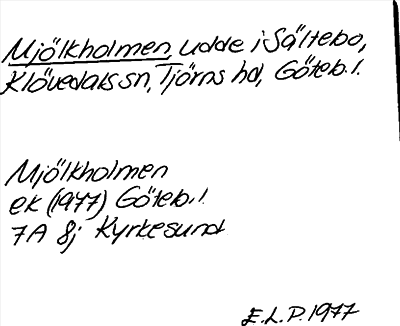 Mjölkholmen, udde i Sältebo,
Klövedals sn, Tjörns hd, Göteb. l.
Mjölkholmen
ek (1977) Göteb. l
7A 8j Kyrkesund
E.L.P. 1977